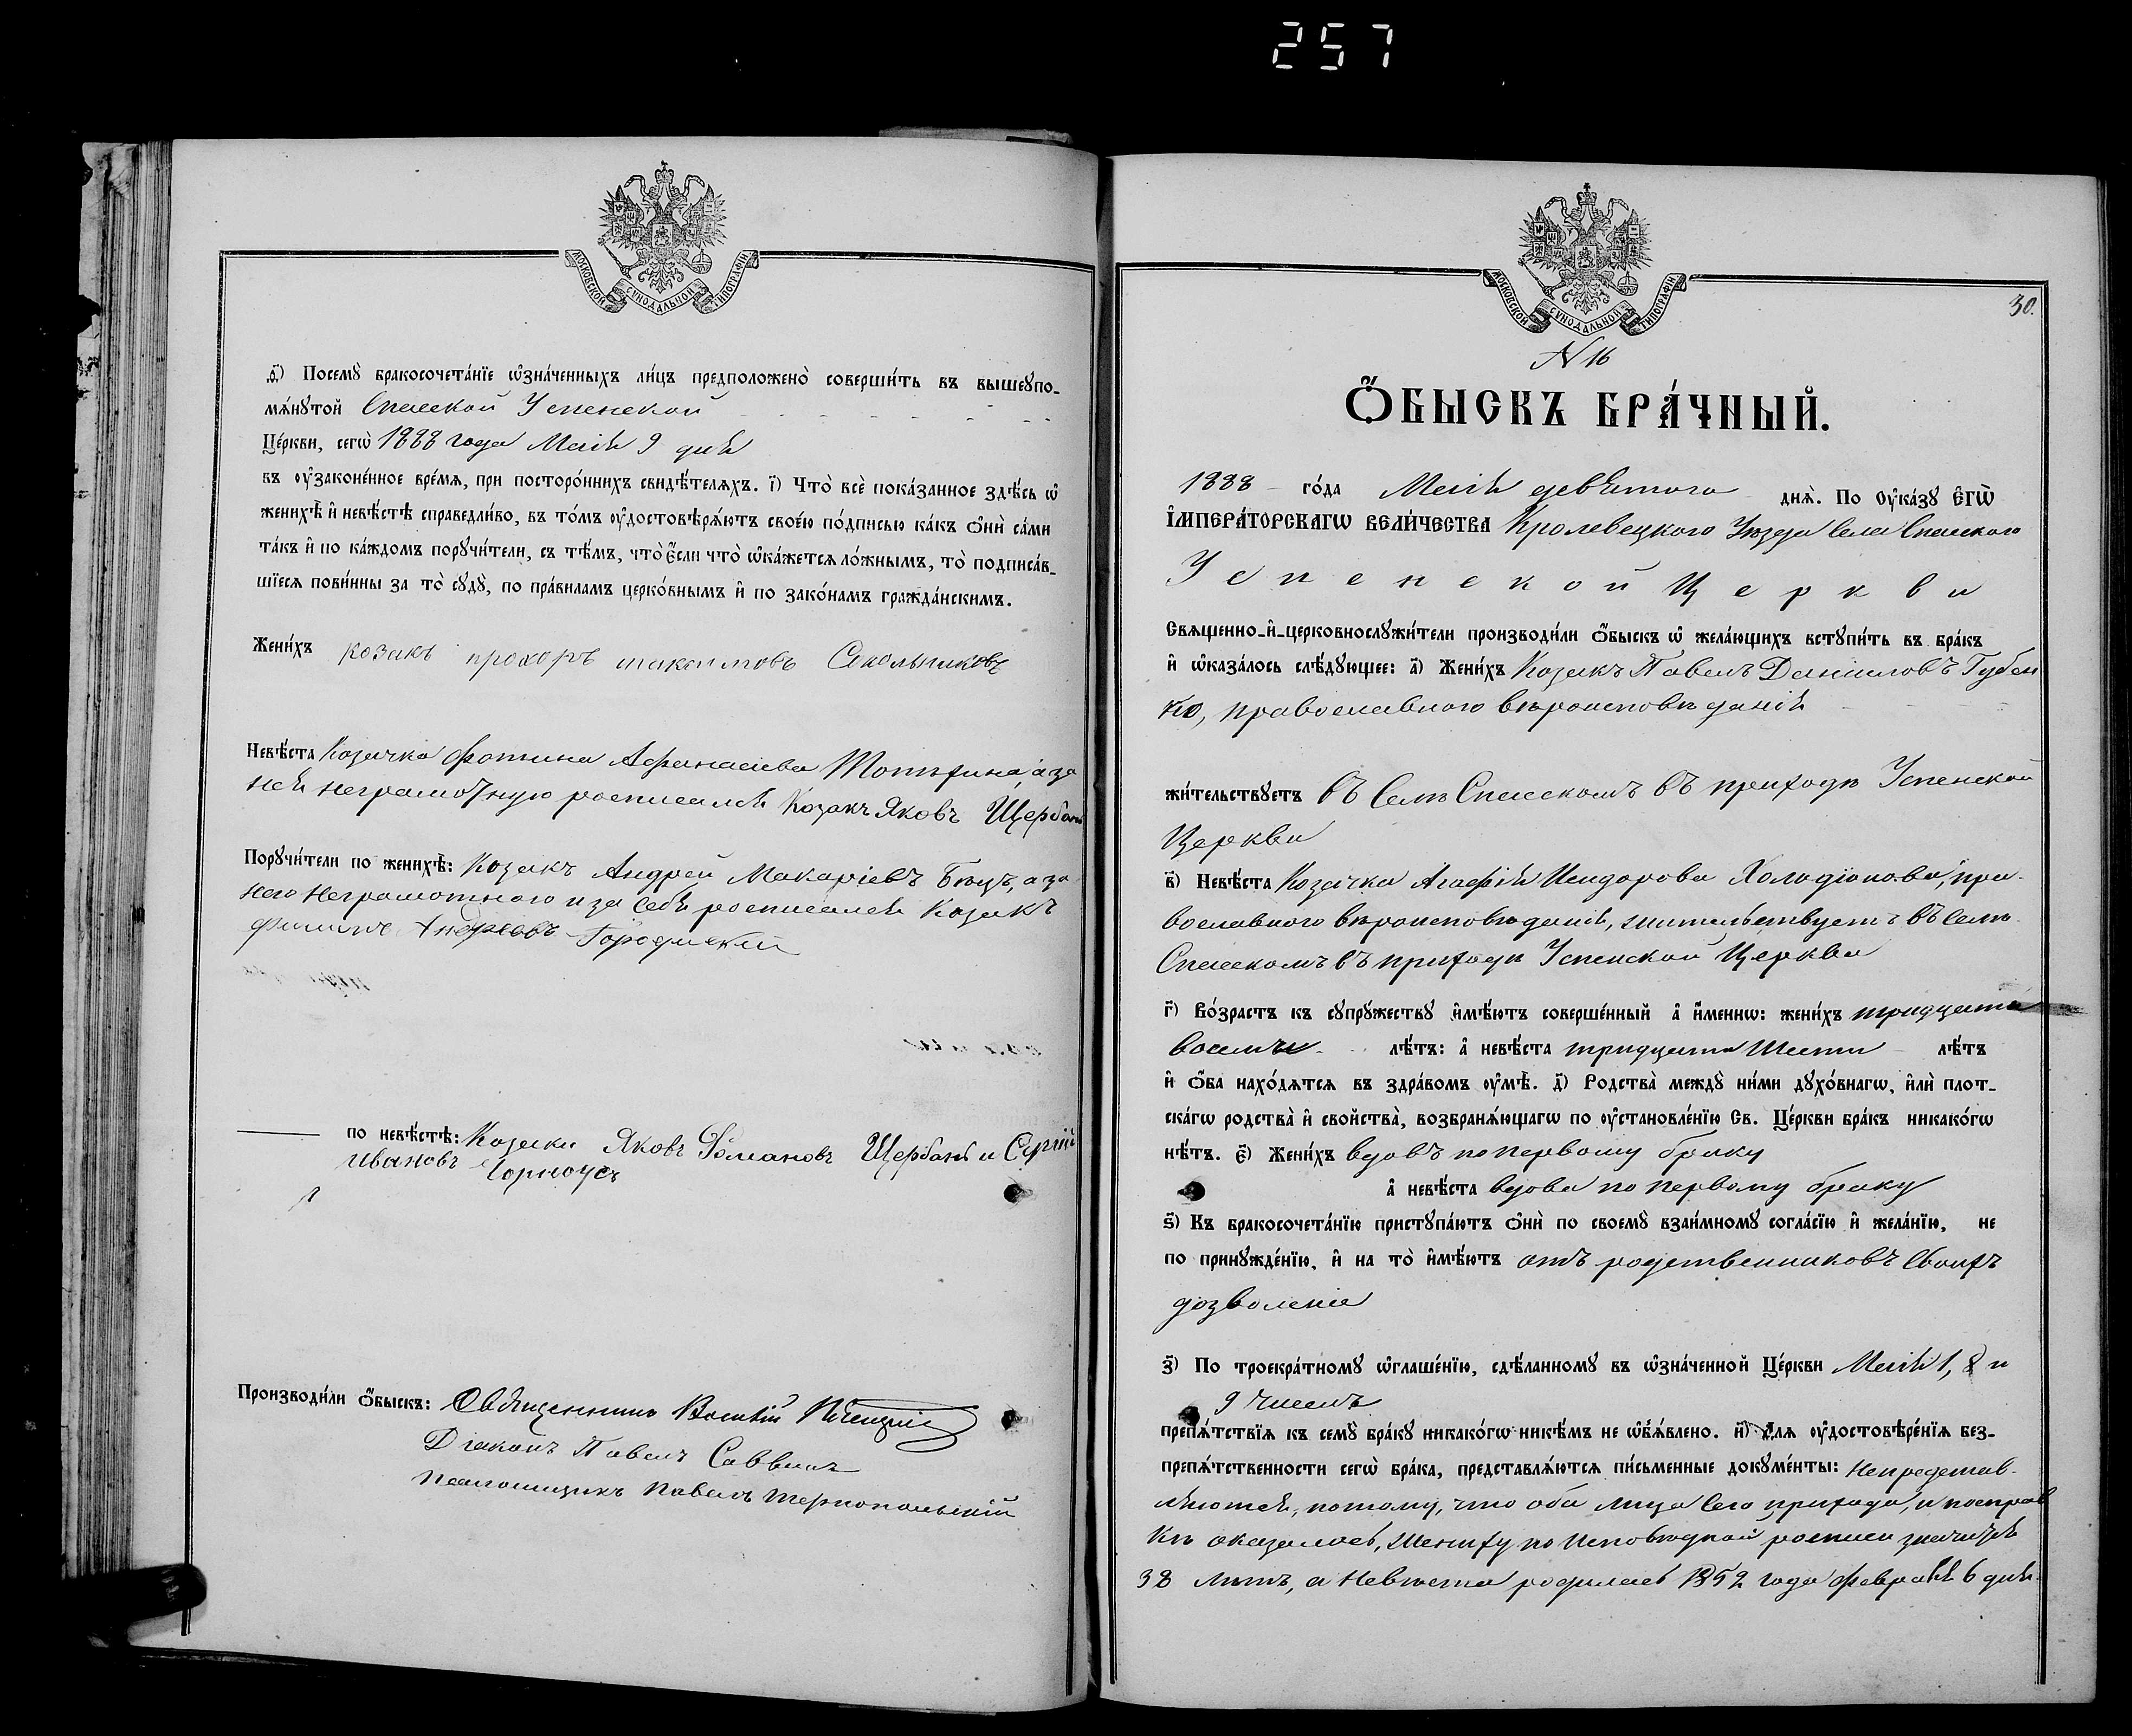 257
МОСКОВСКОЙ СУНОДАЛЬНОЙ ТИПОГРАФІИ
д҃) Посемꙋ̀ бракосочета́нїе ѡ҆зна́ченныхъ ли́цъ предположено̀ соверши́ть въ вышеꙋпо-
мѧ́нꙋтой Спасской Успенской
Це́ркви, сегѡ̀ 1888 года Маія 9 дня
въ ᲂу҆законе́нное вре́мѧ, при посторо́ннихъ свидѣ́телѧхъ. і҃) Что̀ всѐ пока́занное здѣ́сь ѡ҆
женихѣ̀ и҆ невѣ́стѣ справедли́во, въ то́мъ ᲂу҆достовѣрѧ́ютъ свое́ю по́дписью ка́къ ѻ҆нѝ са́ми
та́къ и҆ по ка́ждомъ порꙋчи́тели, съ тѣ́мъ, что̀ є҆́сли что̀ ѡ҆ка́жетсѧ ло́жнымъ, то̀ подписа́в-
шїесѧ пови́нны за то̀ сꙋдꙋ̀, по пра́виламъ церко́внымъ и҆ по зако́намъ гражда́нскимъ.
Жени́хъ козакъ прохоръ максимовъ Сокольниковъ
Невѣ́ста Козачка Фотина Афанасіева Потъхина, а за
нея неграмотную росписался Козакъ Яковъ Щербань
Порꙋчи́тели по женихѣ̀: Козакъ Андрей Макаріевъ Бецъ, а за
него неграмотного и за себя росписался Козакъ
Филипъ Андреевъ Городискій
по невѣ́стѣ: Козаки Яковъ Романовъ Щербань и Сергій
Ивановъ Чорноусъ
Производи́ли ѻ҆́быскъ: Священникъ Василій
Діаконъ Павелъ Саввинъ
Псаломщикъ Павелъ Тернопольскій
МОСКОВСКОЙ СУНОДАЛЬНОЙ ТИПОГРАФІИ
30.
N 16
Ѻ҆́БЫСКЪ БРА́ЧНЫЙ.
1888 го́да Маія девятого днѧ̀. По Оу҆ка́зꙋ Є҆гѡ̀
І҆МПЕРА́ТОРСКАГѠ ВЕЛИ́ЧЕСТВА Кролевецкого Уѣзда Села Спасского
Успенской Церкви
Свѧщенно-и҆-церковнослꙋжи́тели производи́ли ѻ҆́быскъ ѡ҆ жела́ющихъ встꙋпи́ть въ бра́къ
и҆ ѡ҆каза́лось слѣ́дꙋющее: а҃) Жени́хъ Козакъ Павелъ Даниловъ Губен
ко, православного вѣроисповѣданія
жи́тельствꙋетъ въ Селѣ Спасскомъ въ приходѣ Успенской
Церкви
в҃) Невѣ́ста Козачка Агафія Исидорова Холодіонова, пра-
вославного вѣроисповѣданія, жительствуетъ въ Селѣ
Спасскомъ въ приходѣ Успенской Церкви
г҃) Во́зрастъ къ сꙋпрꙋ́жествꙋ и҆мѣ́ютъ соверше́нный а҆ и҆́меннѡ: жени́хъ тридцати
восьми лѣ́тъ: а҆ невѣ́ста тридцати шести лѣ́тъ
и҆ ѻ҆́ба нахо́дѧтсѧ въ здра́вомъ ᲂу҆мѣ̀. д҃) Родства̀ междꙋ̀ ни́ми дꙋхо́внагѡ, и҆лѝ плот-
ска́гѡ родства̀ и҆ свойства̀, возбранѧ́ющагѡ по ᲂу҆становле́нїю Св. Це́ркви бра́къ никако́гѡ
нѣ́тъ. є҃) Жени́хъ вдовъ по первому браку
а҆ невѣ́ста вдова по первому браку
ѕ҃) Къ бракосочета́нїю пристꙋпа́ютъ ѻ҆нѝ по своемꙋ̀ взаи́мномꙋ согла́сїю и҆ жела́нїю, не
по принꙋжде́нїю, и҆ на то̀ и҆мѣ́ютъ отъ родственниковъ своихъ
дозволеніе
з҃) По троекра́тномꙋ ѡ҆глаше́нїю, сдѣ́ланномꙋ въ ѡ҆зна́ченной Це́ркви Маія 1, 8 и
9 чиселъ
препѧ́тствїѧ къ семꙋ̀ бра́кꙋ никако́гѡ никѣ́мъ не ѡ҆б̾ѧ́влено. и҃) Длѧ ᲂу҆достовѣре́нїѧ без-
препѧ́тственности сегѡ̀ бра́ка, представлѧ́ютсѧ пи́сьменные докꙋме́нты: Непредстав-
ляются, потому, что оба лица сего прихода, и посправ
къ оказалось, жениху по исповѣдной росписи значится
38 лѣтъ, а невѣста родилась 1852 года февраля 6 дня.